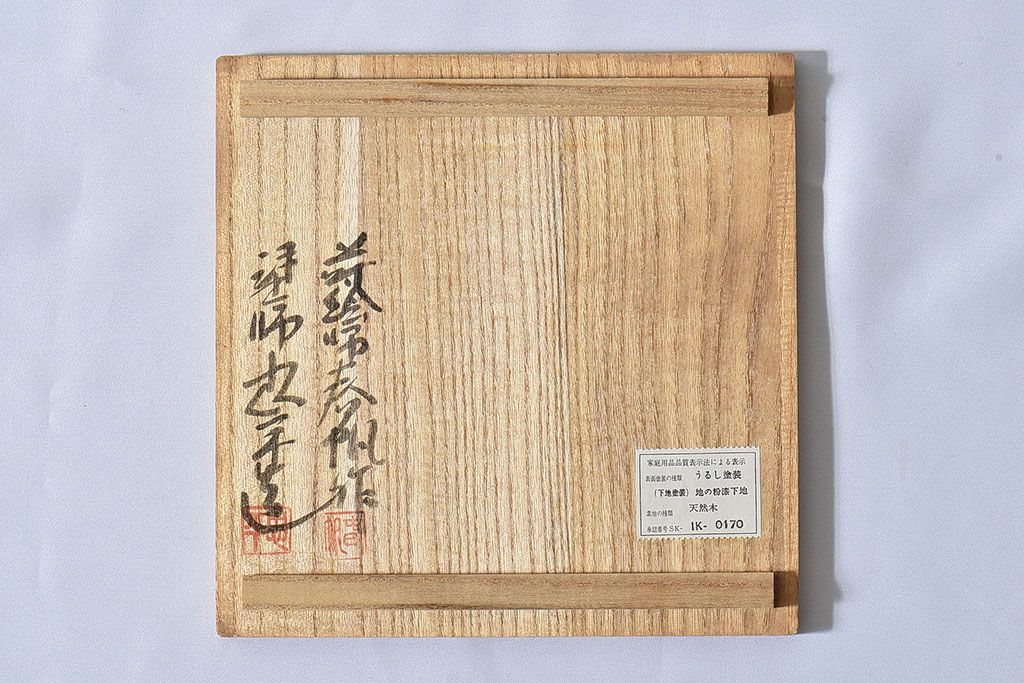 蒔絵師春帆作
塗師也平造
家庭用品品質表示法による表示
表面塗装の種類 うるし塗装
(下地塗装) 地の粉漆下地
素地の種類 天然木
承認番号SK- IK- 0170